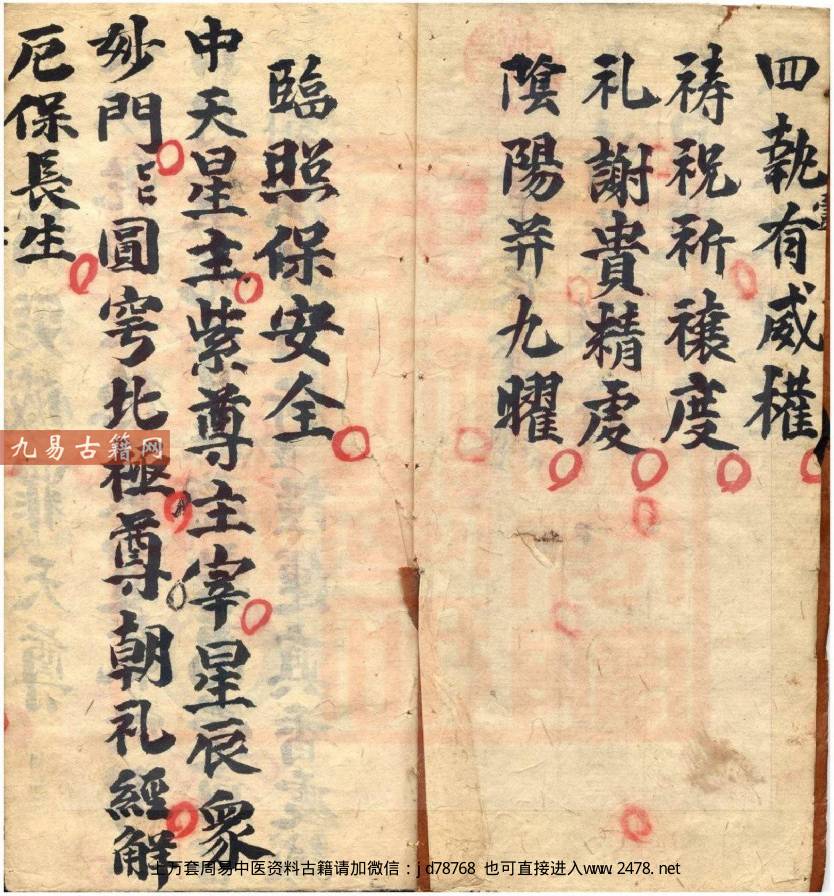 四執有威權
祷祝祈禳度
礼謝貴精虔
隂陽并九曜
臨照保安全
中天星主紫尊主宰星辰衆
妙門圓穹北極尊朝礼經解
厄保長生
九易古籍网
上万套周易中医资料古籍请加微信：jd78768 也可直接进入www.2478.net